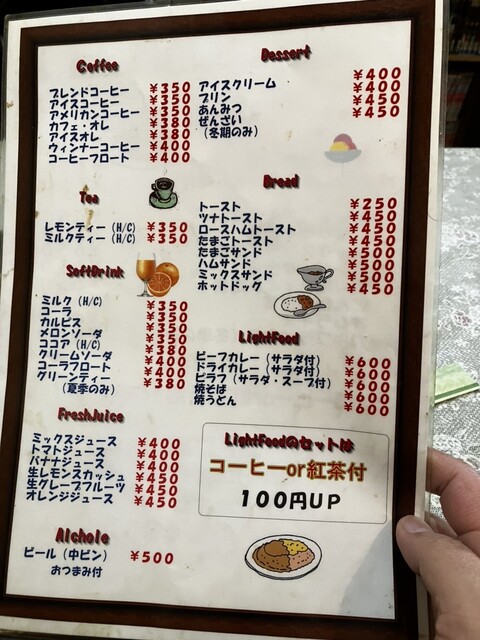 Coffee
ブレンドコーヒー ¥350
アイスコーヒー ¥350
アメリカンコーヒー ¥350
カフェ・オレ ¥380
アイスオレ ¥380
ウィンナーコーヒー ¥400
コーヒーフロート ¥400
Tea
レモンティー (H/C) ¥350
ミルクティー (H/C) ¥350
SoftDrink
ミルク (H/C) ¥350
コーラ ¥350
カルピス ¥350
メロンソーダ ¥350
ココア (H/C) ¥380
クリームソーダ ¥400
コーラフロート ¥400
グリーンティー ¥380
(夏季のみ)
FreshJuice
ミックスジュース ¥400
トマトジュース ¥400
バナナジュース ¥400
生レモンスカッシュ ¥450
生グレープフルーツ ¥450
オレンジジュース ¥450
Alchole
ビール (中ビン) ¥500
おつまみ付
Dessert
アイスクリーム ¥400
プリン ¥400
あんみつ ¥450
ぜんざい ¥450
(冬期のみ)
Bread
トースト ¥250
ツナトースト ¥450
ロースハムトースト ¥450
たまごトースト ¥450
たまごサンド ¥500
ハムサンド ¥500
ミックスサンド ¥500
ホットドッグ ¥450
LightFood
ビーフカレー (サラダ付) ¥600
ドライカレー (サラダ付) ¥600
ピラフ (サラダ・スープ付) ¥600
焼そば ¥600
焼うどん ¥600
LightFoodのセットは
コーヒーor紅茶付
100円UP